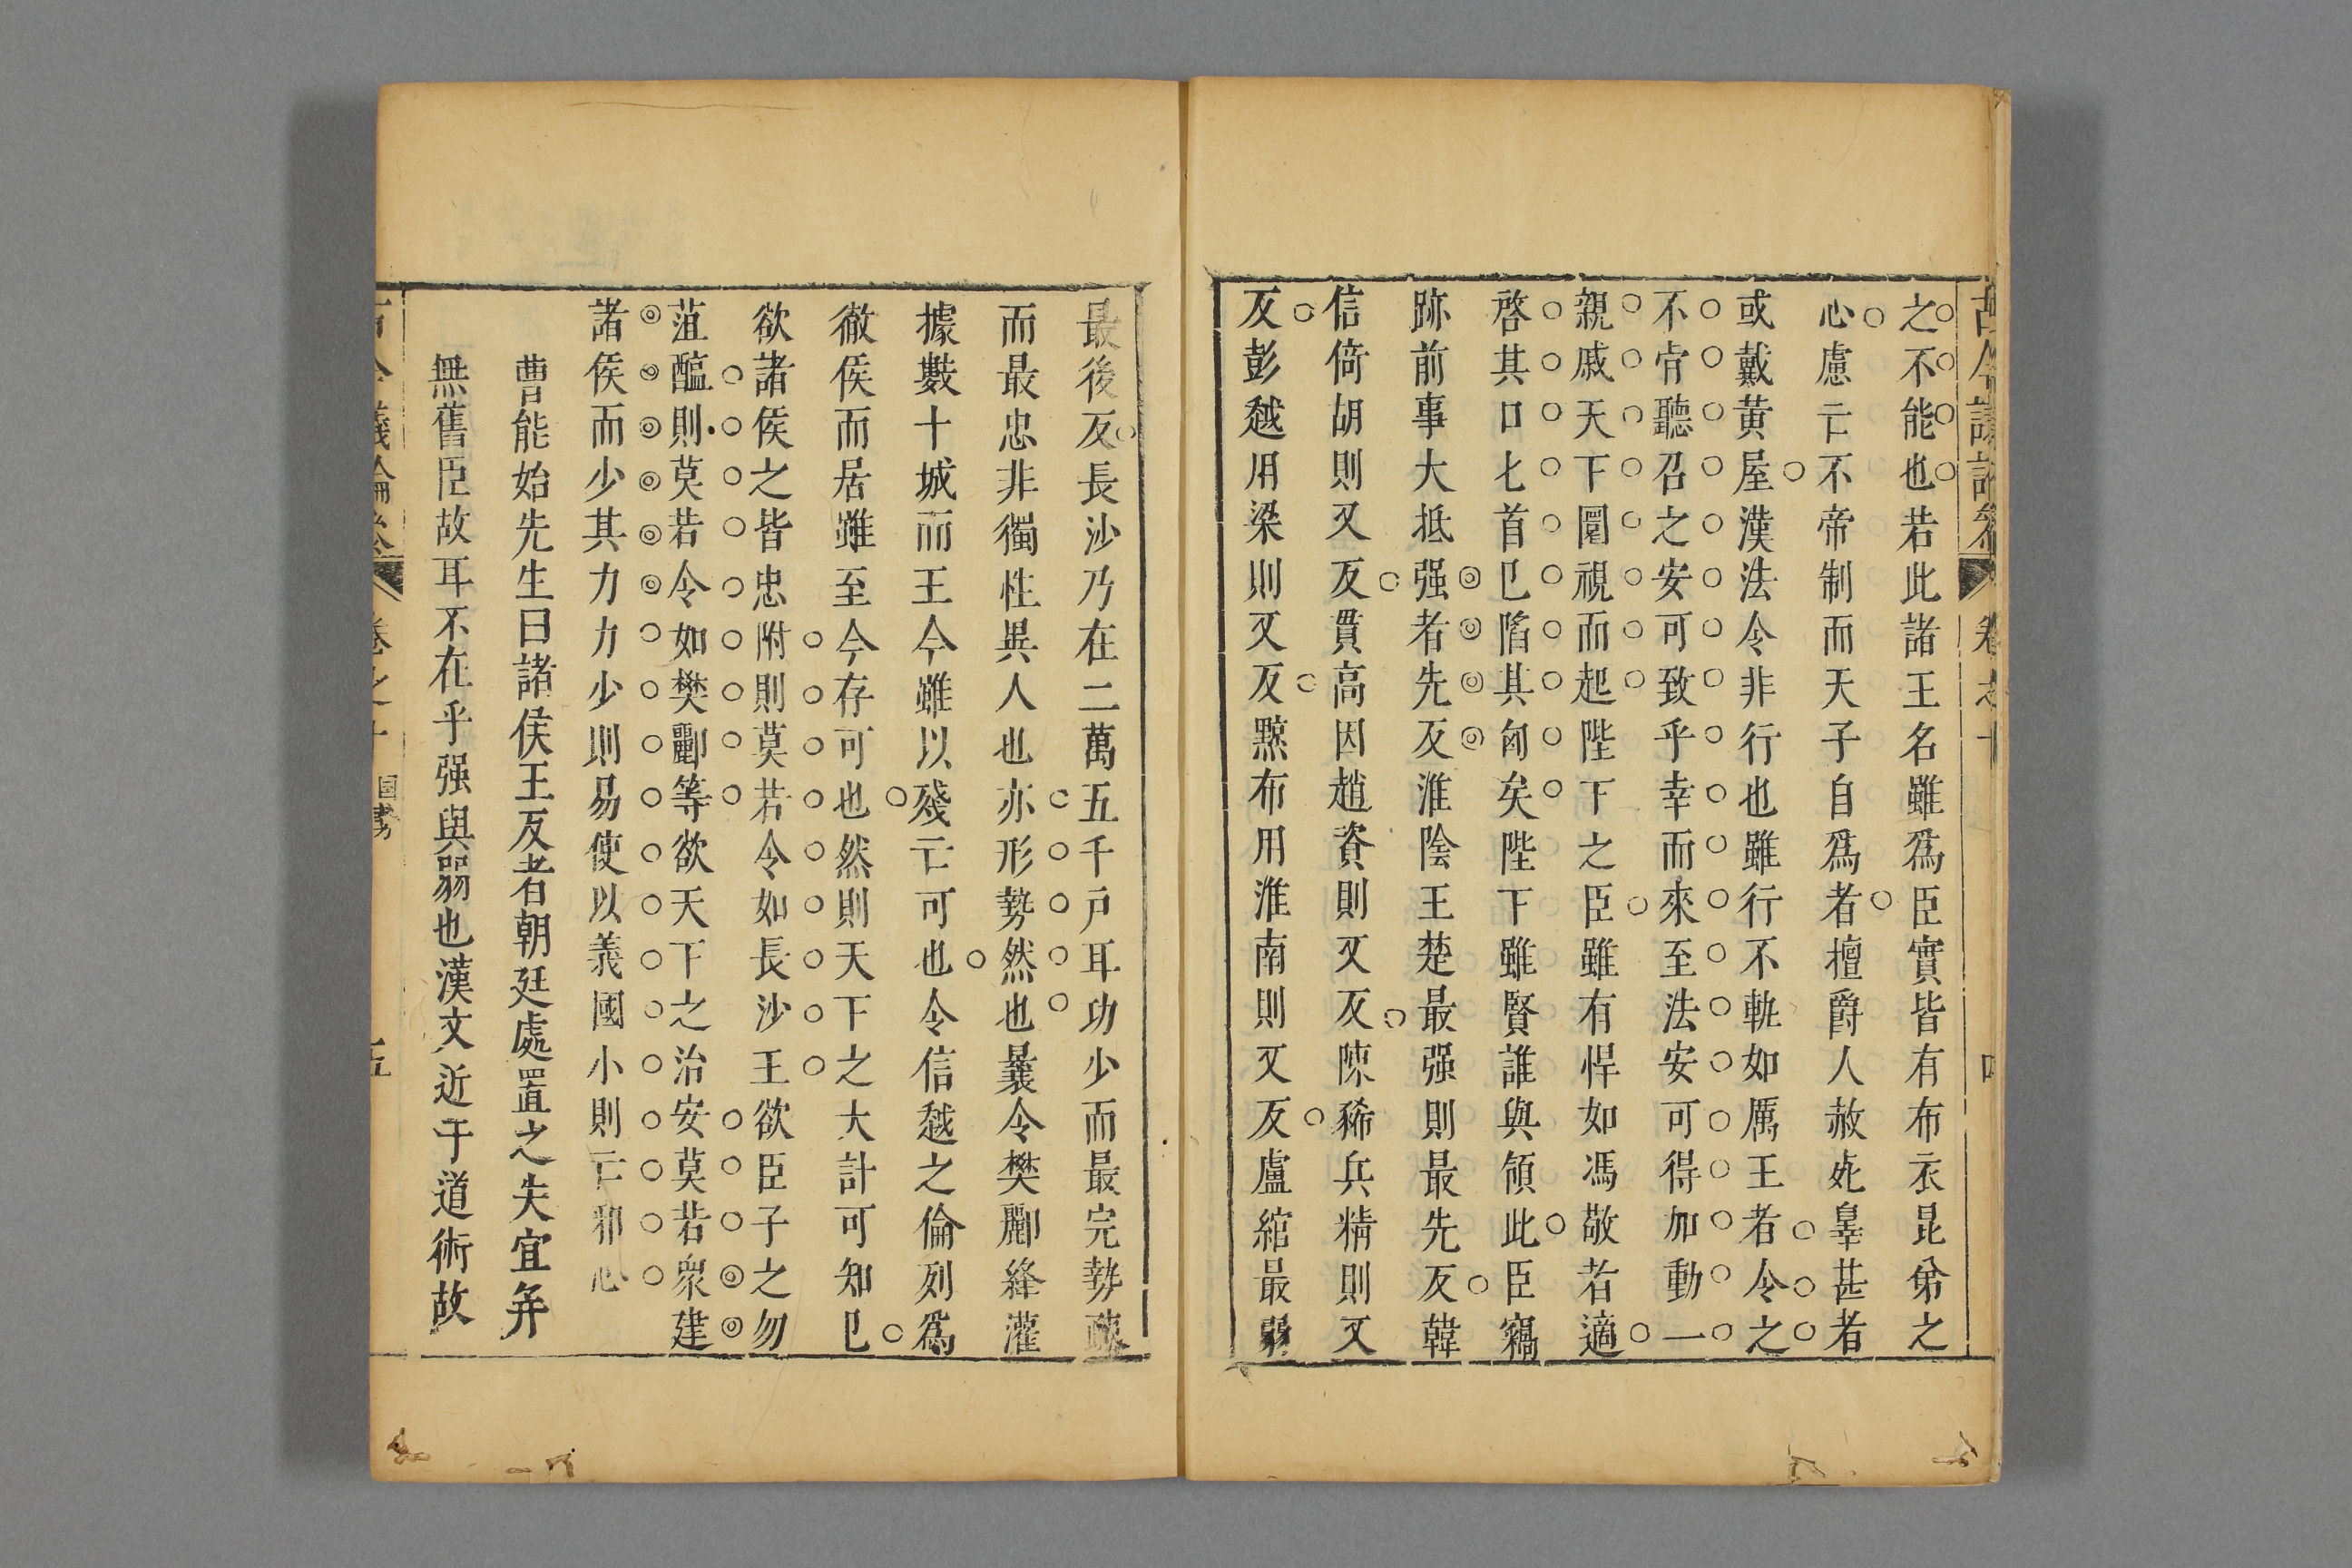 古今議論參 卷之十
之不能也若此諸王名雖爲臣實皆有布衣昆弟之
心慮亡不帝制而天子自爲者擅爵人赦死辠甚者
或戴黄屋漢法令非行也雖行不軌如厲王者令之
不肯聽召之安可致乎幸而來至法安可得加動一
親戚天下圜視而起陛下之臣雖有悍如馮敬者適
啓其口匕首已陷其匈矣陛下雖賢誰與領此臣竊
跡前事大抵强者先反淮陰王楚最强則最先反韓
信倚胡則又反貫高因趙資則又反陳豨兵精則又
反彭越用梁則又反黥布用淮南則又反盧綰最弱
最後反長沙乃在二萬五千戸耳功少而最完勢疏
而最忠非獨性異人也亦形勢然也曩令樊酈絳灌
據數十城而王今雖以殘亡可也令信越之倫列爲
徹侯而居雖至今存可也然則天下之大計可知已
欲諸侯之皆忠附則莫若令如長沙王欲臣子之勿
菹醢則莫若令如樊酈等欲天下之治安莫若衆建
諸侯而少其力力少則易使以義國小則亡邪心
曹能始先生曰諸侯王反者朝廷處置之失宜并
無舊臣故耳不在乎强與弱也漢文近于道術故
古今議論參 卷之十 五